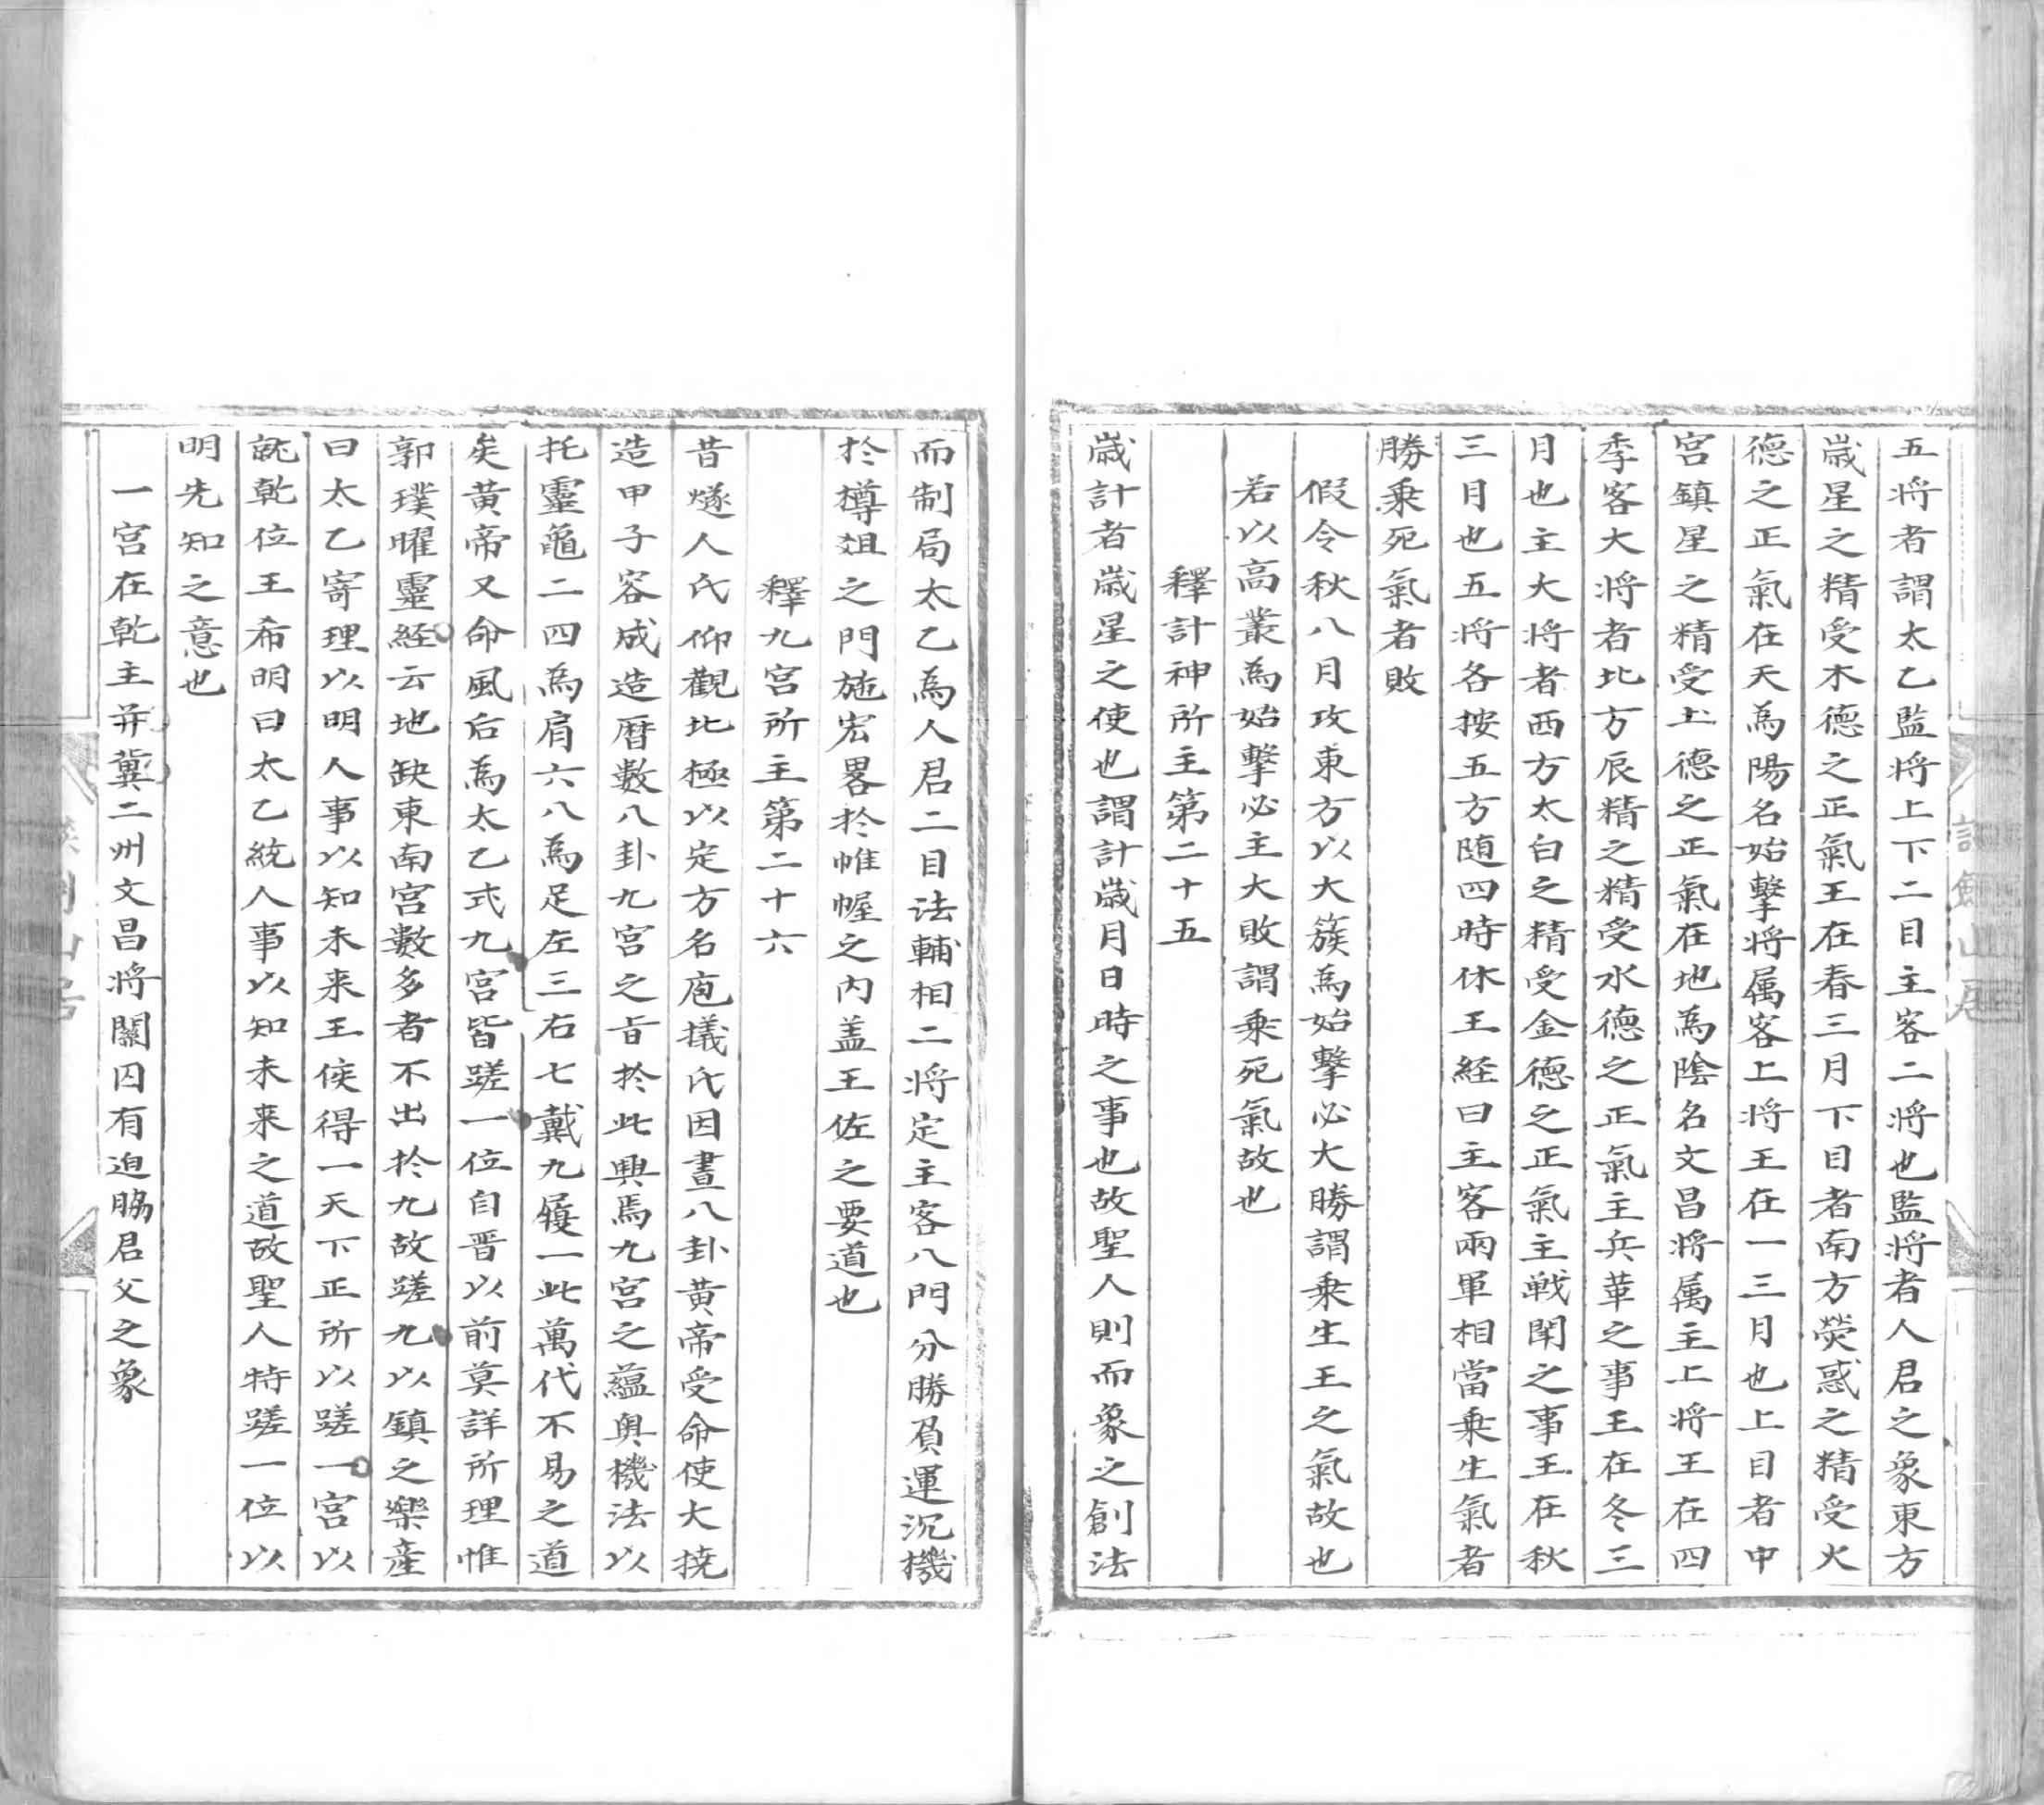 五將者謂太乙監將上下二目主客二將也監將者人君之象東方
歲星之精受木德之正氣王在春三月下目者南方熒惑之精受火
德之正氣在天為陽名始擊將属客上將王在一三月也上目者中
宮鎮星之精受土德之正氣在地為陰名文昌將属主上將王在四
季客大將者北方辰精之精受水德之正氣主兵革之事王在冬三
月也主大將者西方太白之精受金德之正氣主戦鬦之事王在秋
三月也五將各按五方随四時休王経曰主客兩軍相當乘生氣者
勝乘死氣者敗
假令秋八月攻東方以大簇為始擊必大勝謂乘生王之氣故也
若以高叢為始擊必主大敗謂乘死氣故也
釋計神所主第二十五
歲計者歲星之使也謂計歲月日時之事也故聖人則而象之創法
而制局太乙為人君二目法輔相二將定主客八門分勝負運沉機
於樽俎之門施宏畧於帷幄之內盖王佐之要道也
釋九宮所主第二十六
昔燧人氏仰觀北極以定方名庖犧氏因畫八卦黃帝受命使大撓
造甲子容成造曆數八卦九宮之旨於此興焉九宮之蘊奥機法以
托靈龜二四為肩六八為足左三右七戴九履一此萬代不易之道
矣黃帝又命風后為太乙式九宮皆蹉一位自晋以前莫詳所理惟
郭璞曜靈経云地缺東南宮數多者不出於九故蹉九以鎮之樂產
曰太乙寄理以明人事以知未来王侯得一天下正所以蹉一宮以
就乾位王希明曰太乙統人事以知未来之道故聖人特蹉一位以
明先知之意也
一宮在乾主并冀二州文昌將關囚有迫脇君父之象